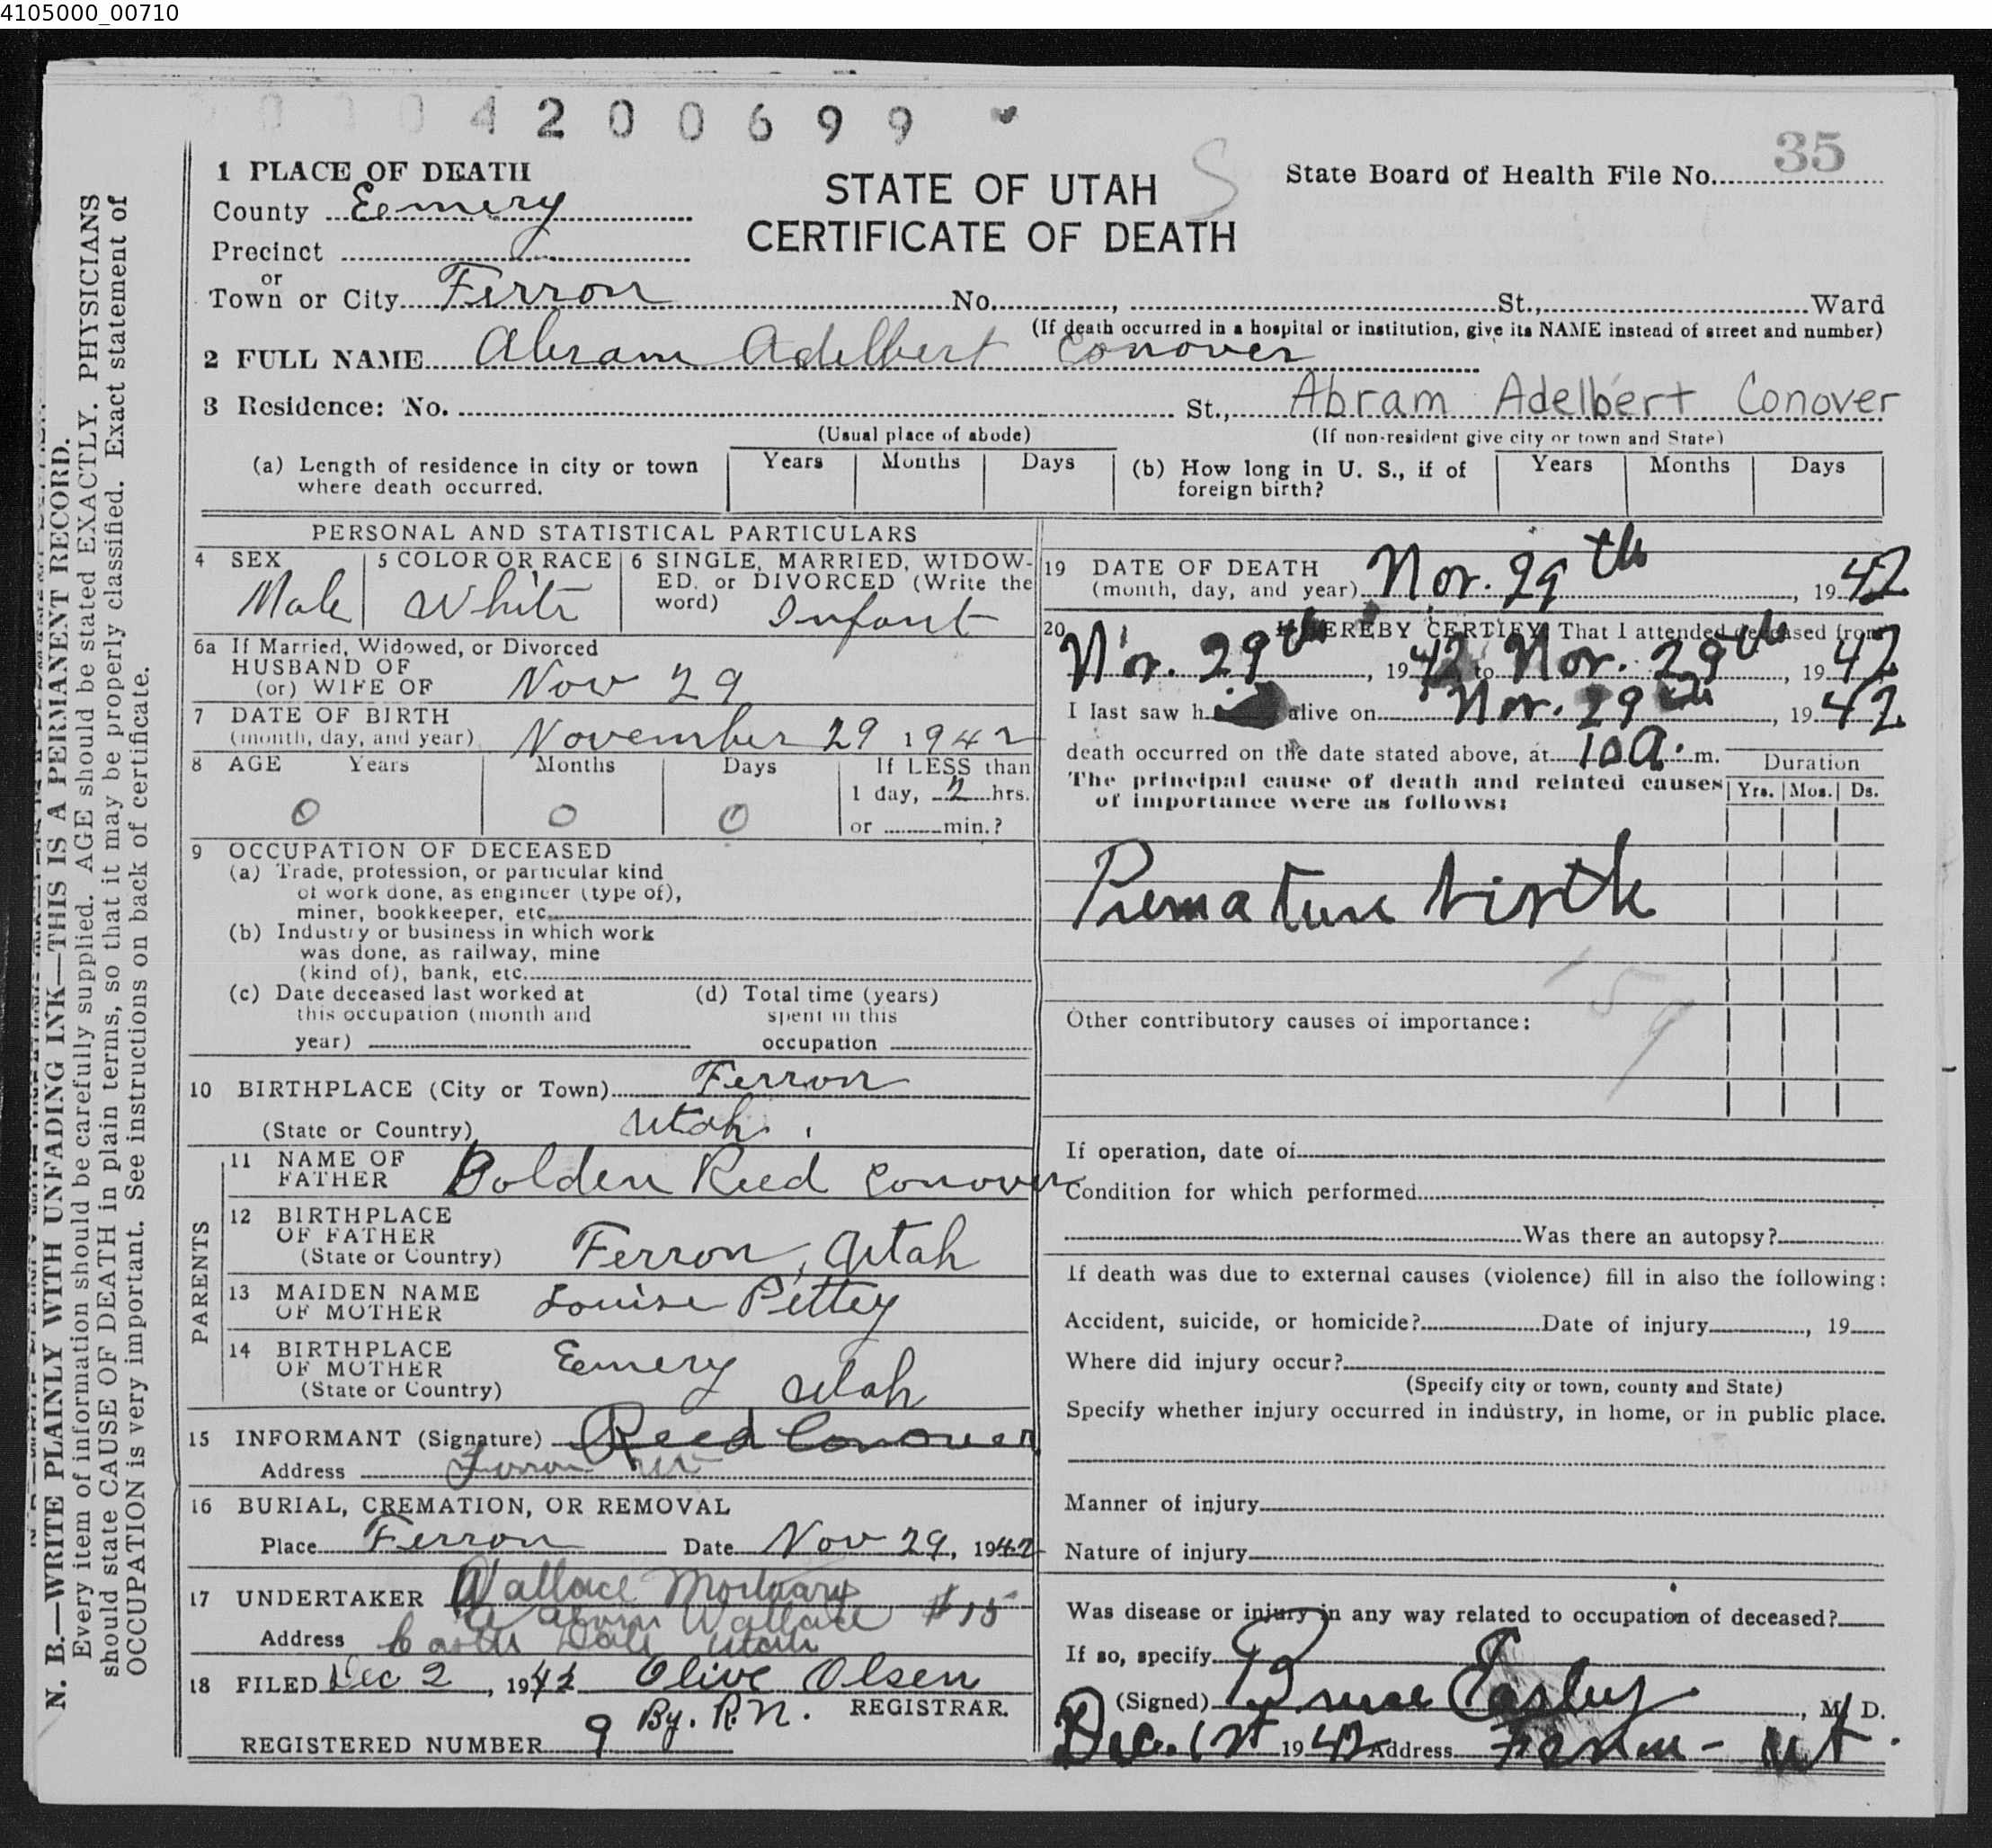 4105000_00710
4 2 0 0 6 9 9
35
1 PLACE OF DEATH
County Eemery
STATE OF UTAH
CERTIFICATE OF DEATH
S
State Board of Health File No.
Precinct
or
Town or City Ferron No. , St., Ward
(If death occurred in a hospital or institution, give its NAME instead of street and number)
2 FULL NAME Abram Adelbert Conover
3 Residence: No. St., Abram Adelbert Conover
(Usual place of abode) (If non-resident give city or town and State)
(a) Length of residence in city or town where death occurred. Years Months Days
(b) How long in U. S., if of foreign birth? Years Months Days
PERSONAL AND STATISTICAL PARTICULARS
4 SEX
Male
5 COLOR OR RACE
White
6 SINGLE, MARRIED, WIDOW-
ED, or DIVORCED (Write the
word) Infant
6a If Married, Widowed, or Divorced
HUSBAND OF
(or) WIFE OF Nov 29
7 DATE OF BIRTH
(month, day, and year) November 29 1942
8 AGE Years Months Days If LESS than
0 0 0 1 day, 2 hrs.
or min.?
9 OCCUPATION OF DECEASED
(a) Trade, profession, or particular kind
of work done, as engineer (type of),
miner, bookkeeper, etc.
(b) Industry or business in which work
was done, as railway, mine
(kind of), bank, etc.
(c) Date deceased last worked at
this occupation (month and
year)
(d) Total time (years)
spent in this
occupation
10 BIRTHPLACE (City or Town) Ferron
(State or Country) Utah
PARENTS
11 NAME OF
FATHER Golden Reed Conover
12 BIRTHPLACE
OF FATHER
(State or Country) Ferron, Utah
13 MAIDEN NAME
OF MOTHER Louise Pettey
14 BIRTHPLACE
OF MOTHER
(State or Country) Eemery Utah
15 INFORMANT (Signature) Reed Conover
Address Ferron Ut
16 BURIAL, CREMATION, OR REMOVAL
Place Ferron Date Nov 29, 1942
17 UNDERTAKER Wallace Mortuary
Wallace #15
Address Castle Dale Utah
18 FILED Dec 2, 1942 Olive Olsen
By. R.N. REGISTRAR.
REGISTERED NUMBER 9
19 DATE OF DEATH
(month, day, and year) Nov. 29th, 1942
20 I HEREBY CERTIFY, That I attended deceased from
Nov. 29th, 1942 to Nov. 29th, 1942
I last saw h alive on Nov. 29th, 1942
death occurred on the date stated above, at 10 a. m.
The principal cause of death and related causes
of importance were as follows:
Duration
Yrs. Mos. Ds.
Premature birth
159
Other contributory causes of importance:
If operation, date of
Condition for which performed
Was there an autopsy?
If death was due to external causes (violence) fill in also the following:
Accident, suicide, or homicide? Date of injury , 19
Where did injury occur?
(Specify city or town, county and State)
Specify whether injury occurred in industry, in home, or in public place.
Manner of injury
Nature of injury
Was disease or injury in any way related to occupation of deceased?
If so, specify
(Signed) Bruce Easley, M. D.
Dec. 1st 1942 Address Ferron - Ut.
N. B.—WRITE PLAINLY WITH UNFADING INK—THIS IS A PERMANENT RECORD.
Every item of information should be carefully supplied. AGE should be stated EXACTLY. PHYSICIANS
should state CAUSE OF DEATH in plain terms, so that it may be properly classified. Exact statement of
OCCUPATION is very important. See instructions on back of certificate.